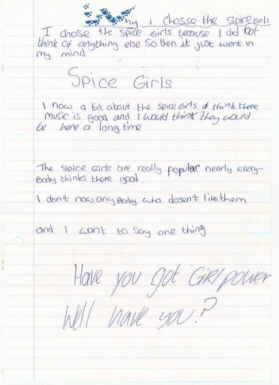 why i chosse the spice girls
I choose the spice Girls because I did Not
think of anything else So then it just went in
my mind
SPICE GIRLS
I now a bit about the spice Girls I think there
music is good and I would think they would
be here a long time
The spice Girls are really popular nearly every-
Body thinks there good
I dont now any Body who doesnt like them
and I want to say one thing
Have you got Girl power
Well have you?